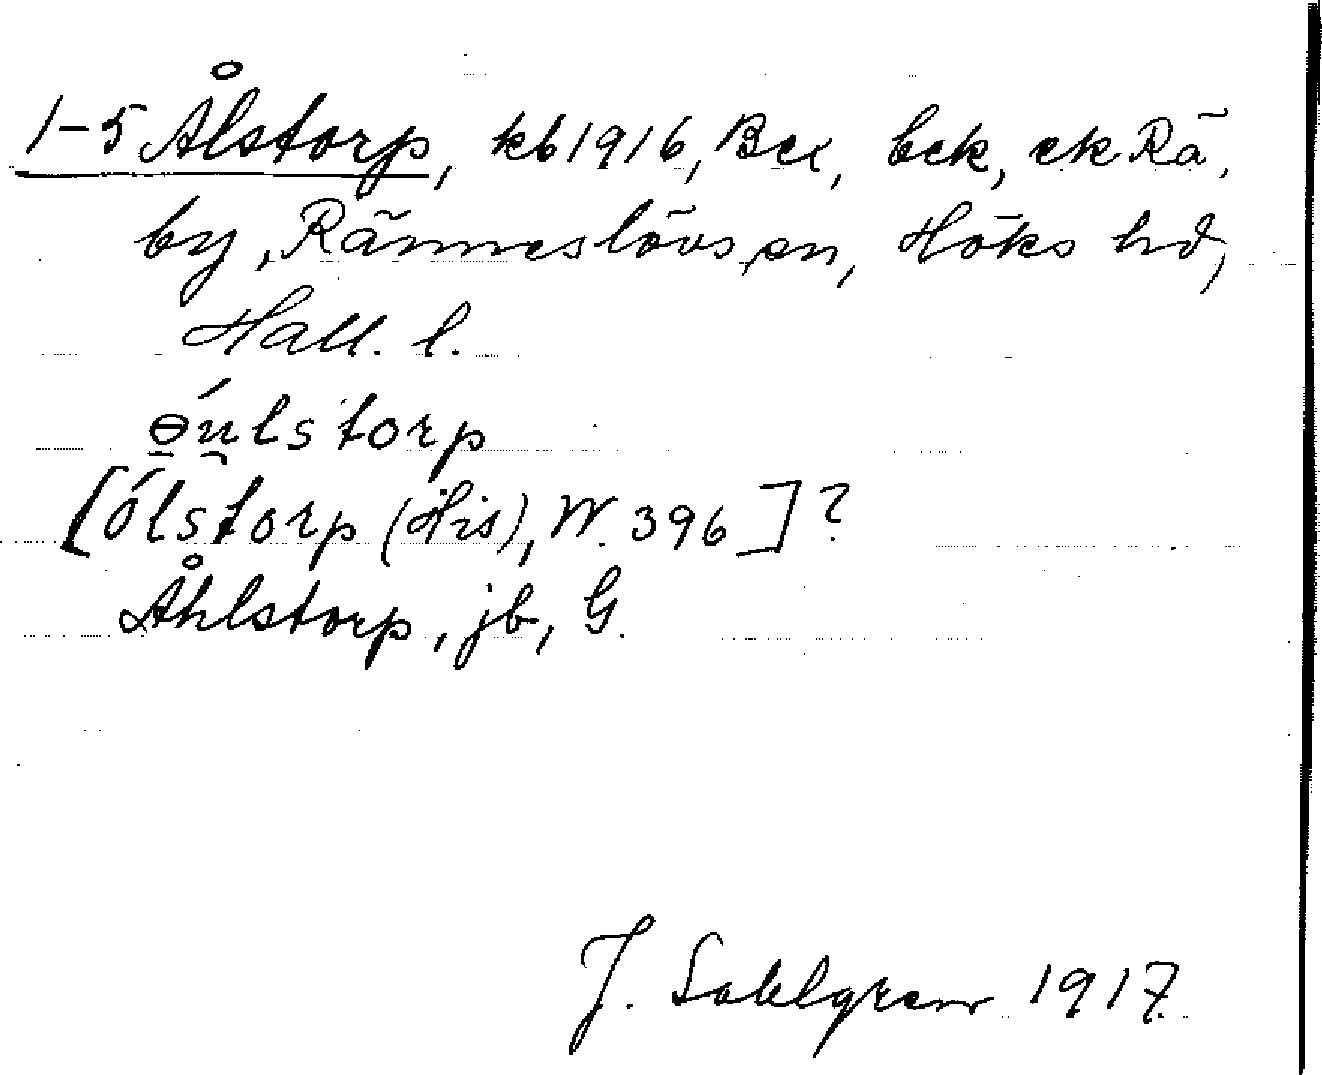 1-5 Ålstorp, kb 1916, Bex, bek, ek Rä,
by, Ränneslövs sn, Höks hd,
Hall. l.
ө́u̯lstorp
[ólstorp (His), W. 396]?
Åhlstorp, jb, G.
J. Sahlgren 1917